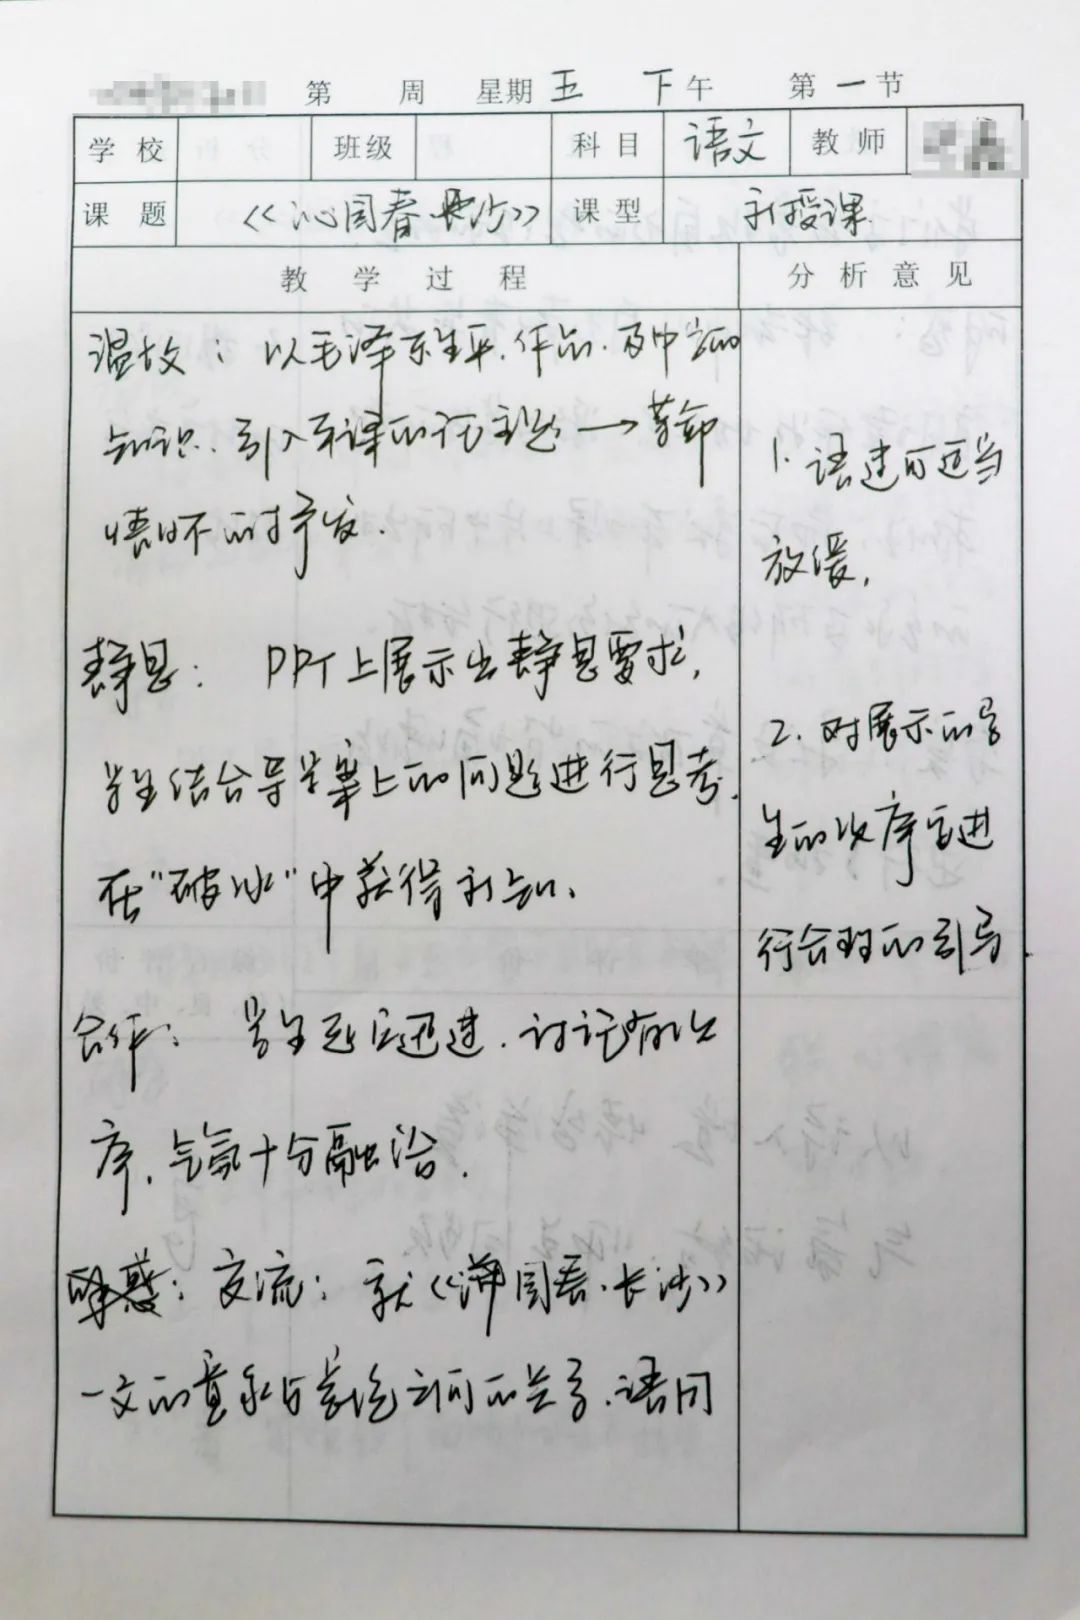 第 周 星期五 下午 第一节
学校 班级 科目 语文 教师
课题 《沁园春·长沙》 课型 新授课
教学过程 分析意见
温故：以毛泽东生平、作品、及中学的
知识、引入新课的主题→革命
情怀的抒发.
静思：PPT上展示出静思要求,
学生结合导学案上的问题进行思考.
在"破冰"中获得新知.
合作：学生反应迅速、讨论有次
序、气氛十分融洽.
解惑：交流：就《沁园春·长沙》
一文的意象与意境之间的关系、语用
1. 语速可适当
放缓,
2. 对展示的学
生的次序应进
行合理的引导.